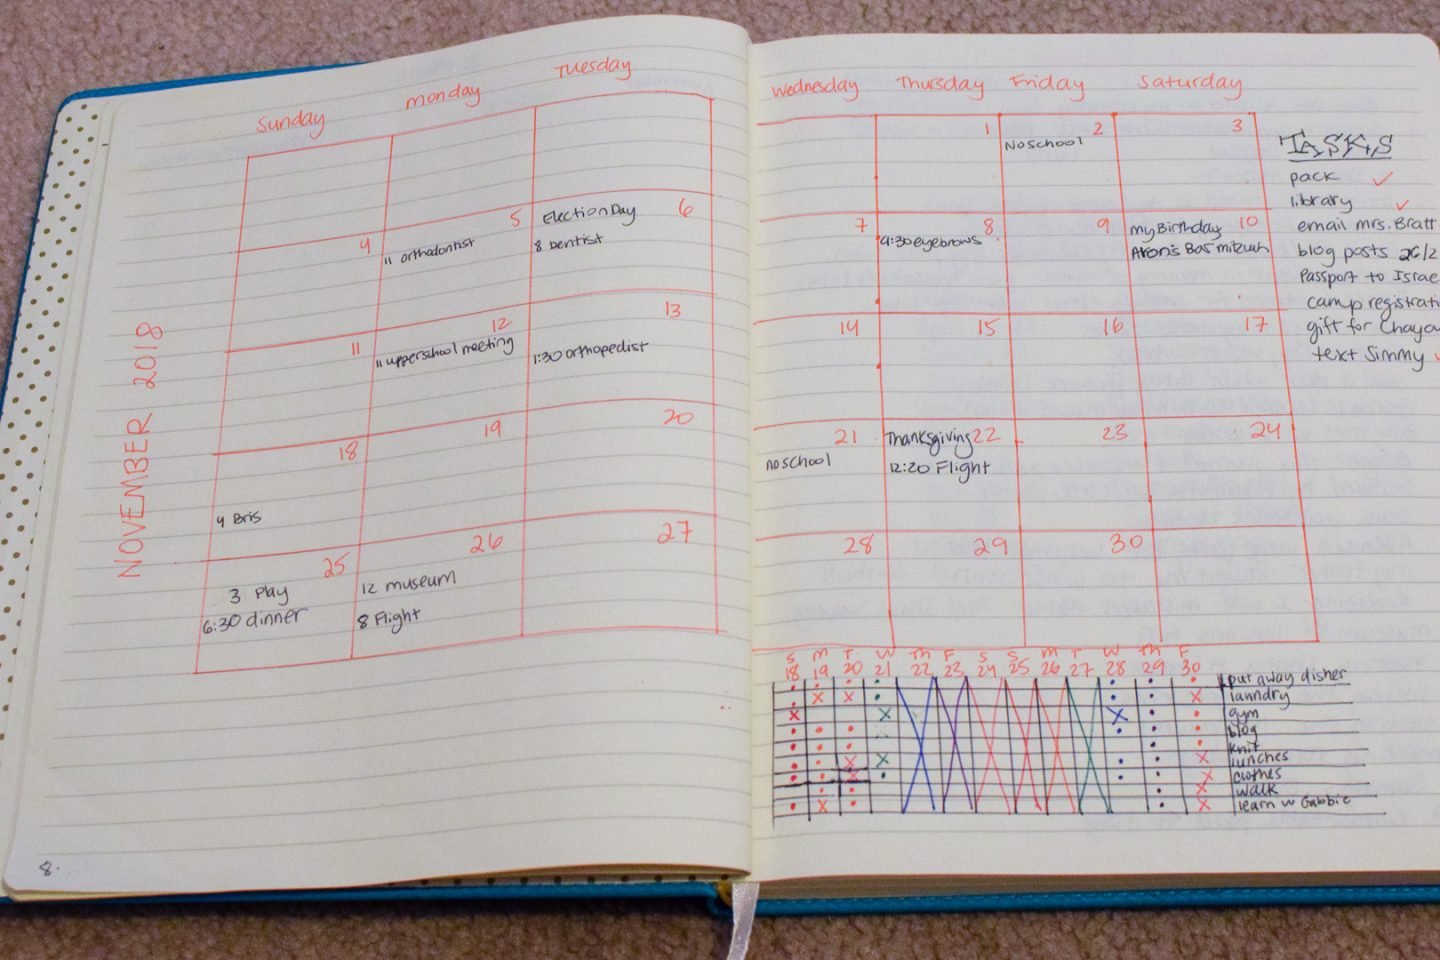 Sunday Monday Tuesday Wednesday Thursday Friday Saturday
NOVEMBER 2018
1
2
No school
3
4
5
11 orthodontist
6
Election Day
8 Dentist
7
8
9:30 eyebrows
9
10
my Birthday
Aron's Bas mitzvah
11
12
11 upperschool meeting
13
1:30 orthopedist
14
15
16
17
18
4 Bris
19
20
21
no school
Thanksgiving 22
12:20 Flight
23
24
25
3 Play
6:30 dinner
26
12 museum
8 Flight
27
28
29
30
TASKS
pack ✓
library ✓
email mrs. Bratt
blog posts
Passport to Israe
camp registrati
gift for Chayou
text Simmy
S M T W Th F S S M T W Th F
18 19 20 21 22 23 24 25 26 27 28 29 30
put away dishes
laundry
gym
blog
knit
lunches
clothes
walk
learn w Gabbie
8.